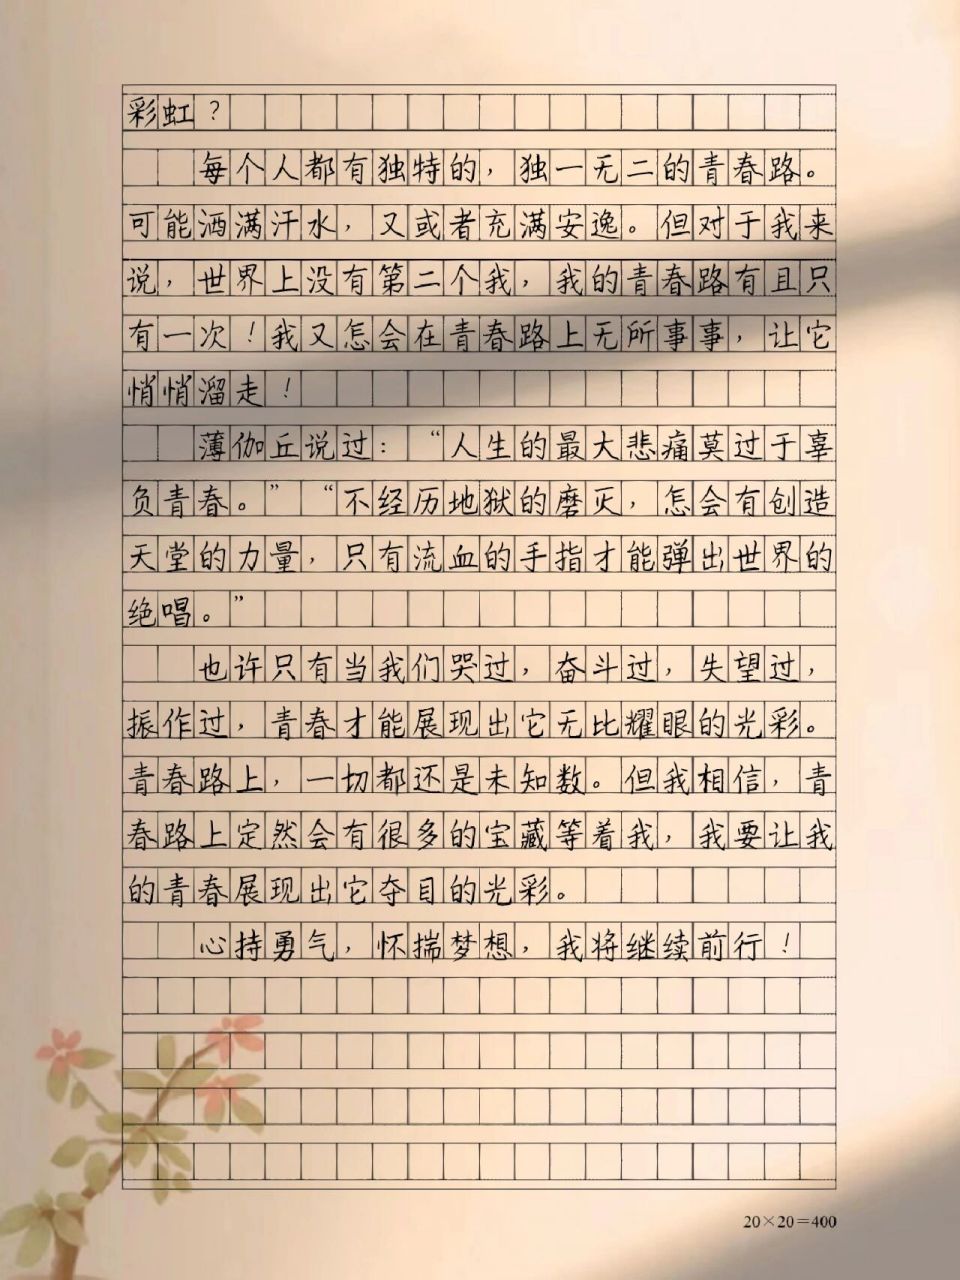 彩虹？
每个人都有独特的，独一无二的青春路。
可能洒满汗水，又或者充满安逸。但对于我来
说，世界上没有第二个我，我的青春路有且只
有一次！我又怎会在青春路上无所事事，让它
悄悄溜走！
薄伽丘说过：“人生的最大悲痛莫过于辜
负青春。”“不经历地狱的磨灭，怎会有创造
天堂的力量，只有流血的手指才能弹出世界的
绝唱。”
也许只有当我们哭过，奋斗过，失望过，
振作过，青春才能展现出它无比耀眼的光彩。
青春路上，一切都还是未知数。但我相信，青
春路上定然会有很多的宝藏等着我，我要让我
的青春展现出它夺目的光彩。
心持勇气，怀揣梦想，我将继续前行！
20×20=400